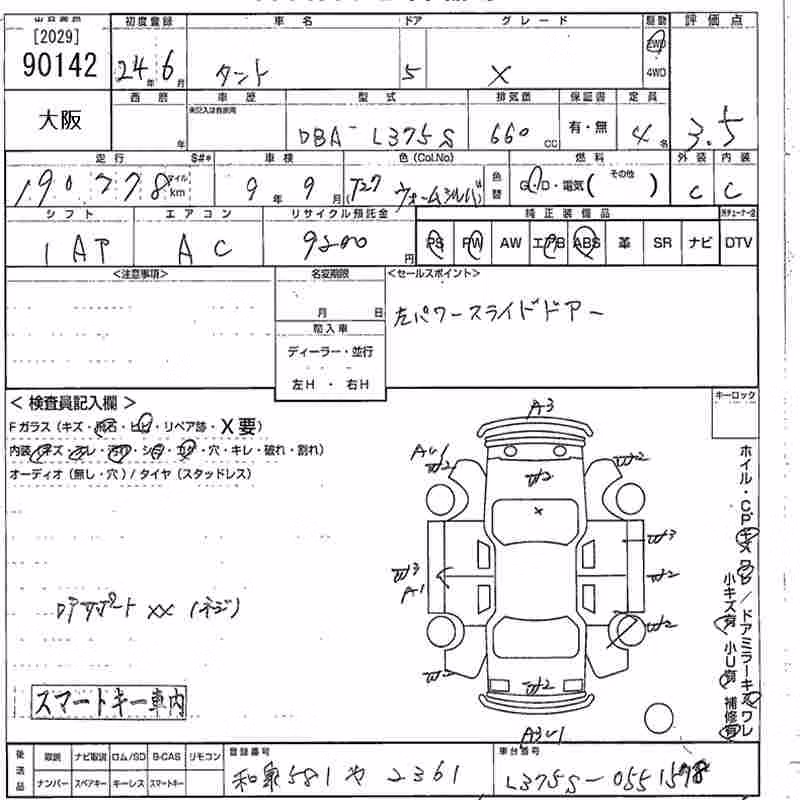 出品票番
[2029]
90142
大阪
初度登録 車名 ドア グレード 駆動 評価点
24年6月 タント 5 X 2WD 4WD 3.5
西暦 車歴 型式 排気量 保証書 定員
未記入は自家用
年 DBA-L375S 660cc 有・無 4名
走行 S#* 車検 色(Col.No) 色替 燃料 外装 内装
190778 マイル km 9年9月 (T27 ウォームシルバ) G・D・電気( その他 ) C C
シフト エアコン リサイクル預託金 純正装備品
1AT AC 9500円 PS PW AW エアB ABS 革 SR ナビ DTV
<注意事項> 名変期限 <セールスポイント>
月 日
左パワースライドドアー
輸入車
ディーラー・並行
左H・右H
<検査員記入欄> キーロック
Fガラス(キズ・飛石・ヒビ・リペア跡・X要)
内装(キズ・スレ・汚れ・シミ・コゲ・穴・キレ・破れ・割れ)
オーディオ(無し・穴)/タイヤ(スタッドレス)
A3
AU1
W2 W2
W2
×
W3
W3 W2
A1
W2
W2 W2
A3U1
Dアサポート XX (ネジ)
スマートキー車内
ホイル・CPキズ
ドアミラーキズワレ
小キズ有 小U有 補修有
後送品 取説 ナビ取説 ロム/SD B-CAS リモコン
ナンバー スペアキー キーレス スマートキー
登録番号 車台番号
和泉581や2361 L375S-0551598